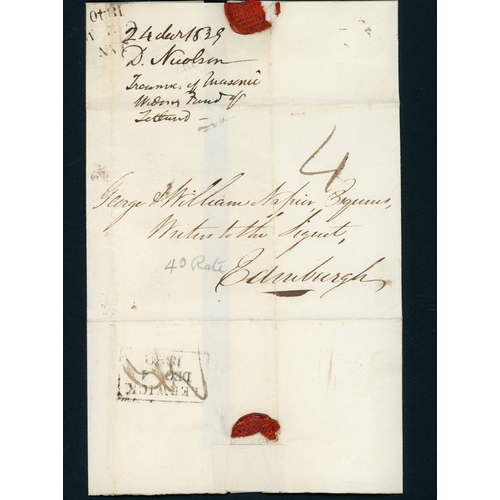 24 decr 1839
D. Nicolson
Treasurer of Masonic
Widows Fund of
Zetland
4
George & William Napier Esquires,
Writers to the Signet,
Edinburgh
4D Rate
LERWICK
DEC